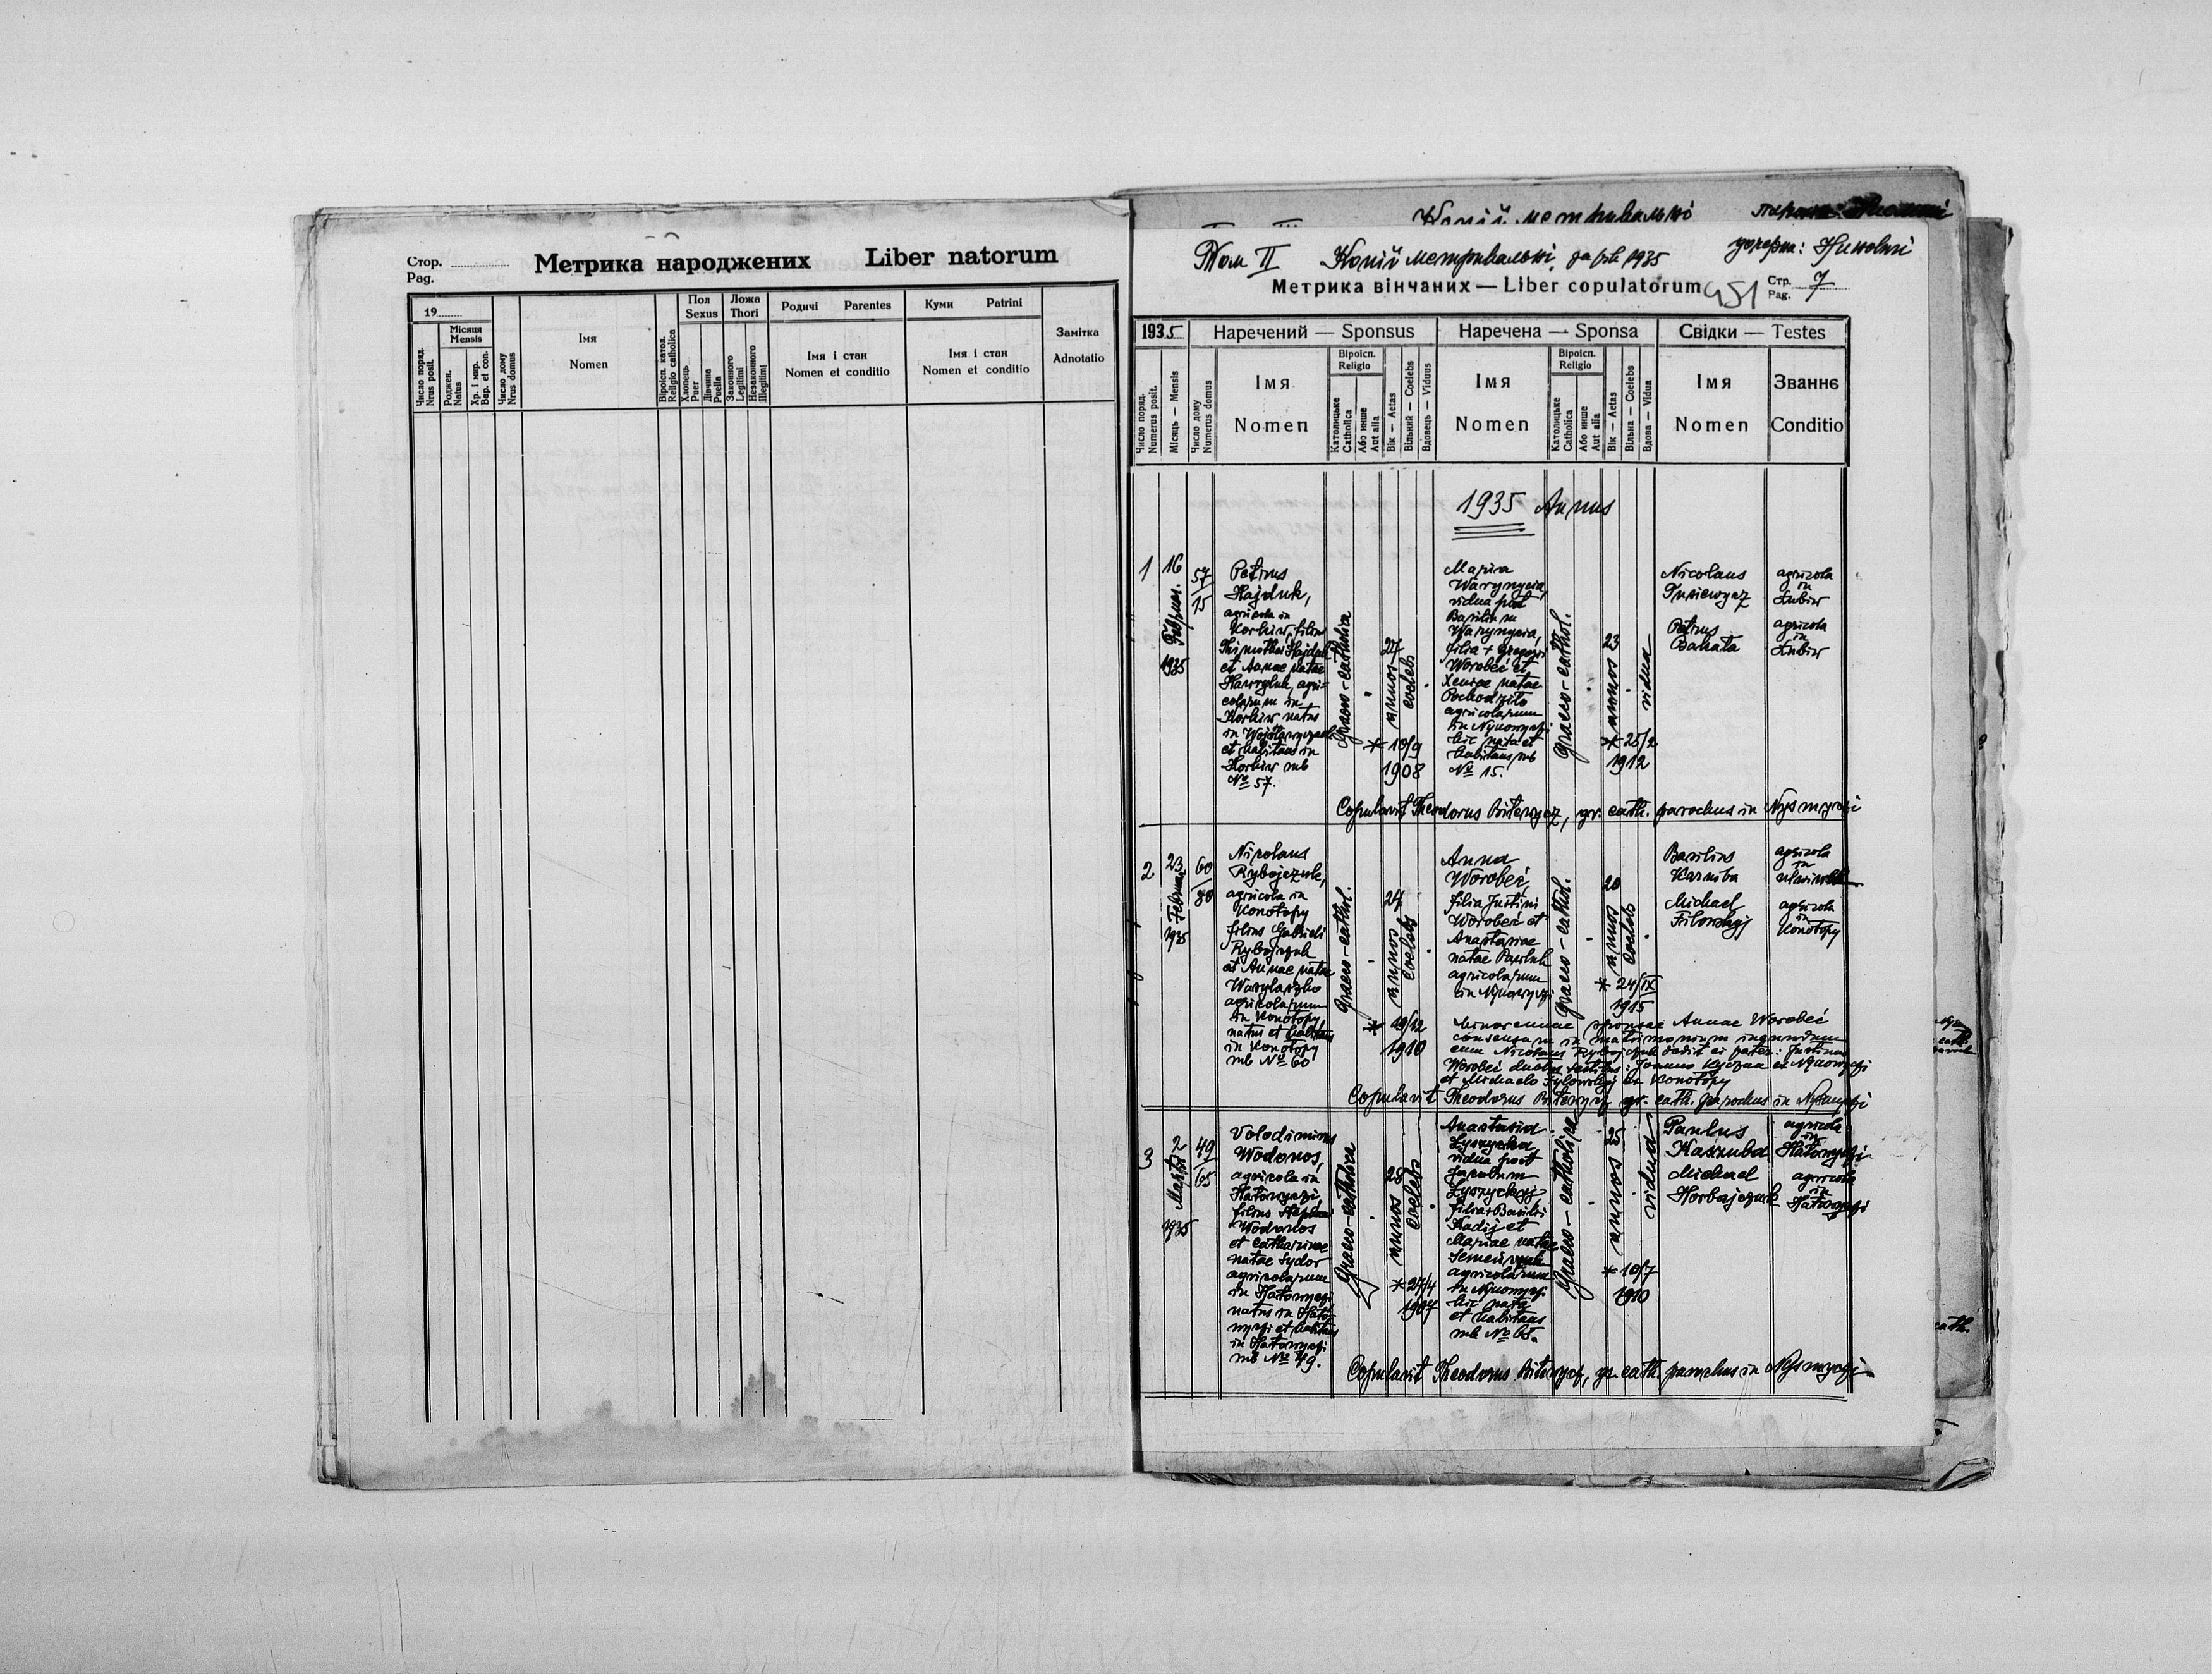 Стор.
Pag.
Метрика народжених Liber natorum
19
Число поряд.
Nrus posit.
Місяця
Mensis
Роджен.
Natus
Хр. і мир.
Bap. et con.
Число дому
Nrus domus
Імя
Nomen
Віроісп. катол.
Religio catholica
Пол
Sexus
Хлопець
Puer
Дівчина
Puella
Ложа
Thori
Законного
Legitimi
Незаконного
Illegitimi
Родичі Parentes
Імя і стан
Nomen et conditio
Куми Patrini
Імя і стан
Nomen et conditio
Замітка
Adnotatio
Копій метрикальні
Том II Копій метрикальні за рік 1935
Метрика вінчаних — Liber copulatorum 451 Стр.
Pag. 7
1935 Наречений — Sponsus Наречена — Sponsa Свідки — Testes
Число поряд.
Numerus posit.
Місяць — Mensis
Число дому
Numerus domus
Імя
Nomen
Віроісп.
Religio
Католицьке
Catholica
Або инше
Aut alia
Вік — Aetas
Вільний — Coelebs
Вдовець — Viduus
Імя
Nomen
Віроісп.
Religio
Католицьке
Catholica
Або инше
Aut alia
Вік — Aetas
Вільна — Coelebs
Вдова — Vidua
Імя
Nomen
Званнє
Conditio
1935 Annus
1
16
Februar.
1935
57
15
Petrus
Hajduk,
agricola in
Korkiw, filius
Timothei Hajduk
et Annae natae
Hawryluk, agri-
colarum in
Korkiw natus
in
et habitans in
Korkiw sub
№ 57.
Graeco-catholica
27
annos
coelebs
* 10/9
1908
Maria
Warynycia,
vidua post
Basilium
Warynycia,
filia + Gregorii
Worobeć et
Xeniae natae
Pochodziło
agricolarum
in Nynowyczi
hic nata et
habitans sub
№ 15.
graeco-cathol.
23
annos
vidua
* 25/2
1912
Nicolaus
agricola
in
Łubiw
Petrus
Bahata
agricola
in
Łubiw
Copulavit Theodorus Bitewycz, gr. cath. parochus in Nysmyczi
2
23
Februar
1935
60
80
Nicolaus
Rybojczuk,
agricola in
Konotopy
filius Gabrieli
Rybojczuk
et Annae natae
Wasylaszko
agricolarum
in Konotopy,
natus et habitans
in Konotopy
sub № 60
Graeco-cathol.
24
annos
coelebs
* 19/12
1910
Anna
Worobeć,
filia Justini
Worobeć et
Anastasiae
natae Pawluk
agricolarum
in Nynowyczi
graeco-cathol.
20
annos
coelebs
* 24/IX
1915
Basilius
Kaszuba
agricola
in
Michael
Filowskyj
agricola
in
Konotopy
minorennae sponsae Annae Worobeć
consensum in matrimonium ineundum
cum Nicolaus Rybojczuk dedit ei pater: Justinus
Worobeć duobus testibus: Joanno Kyczma ex Nynowyczi
et Michaelo Fylowskyj ex Konotopy
Copulavit Theodorus Bitewycz gr. cath. parochus in Nysmyczi
3
2
Martii
1935
49
65
Volodimirus
Wodonos,
agricola in
Hatowyczi,
filius Stephani
Wodonos
et Catharinae
natae Sydor
agricolarum
in Hatowyczi
natus in Hato-
wyczi et habitans
in Hatowyczi
sub № 49.
Graeco-catholica
28
annos
coelebs
* 27/4
1907
Anastasia
Łyszycka
vidua post
Jacobum
Łyszyckyj
filia + Basilii
Hadij et
Mariae natae
agricolarum
in Nynowyczi
hic nata
et habitans
sub № 65.
Graeco-catholica
25
annos
vidua
* 10/7
1910
Paulus
Kaszuba
agricola
in
Hatowyczi
Michael
Horbajczuk
agricola
in
Hatowyczi
Copulavit Theodorus Bitewycz, gr. cath. parochus in Nysmyczi